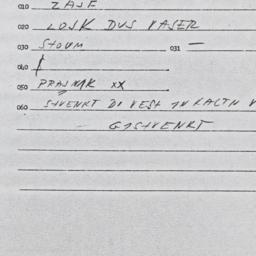 010 ZASE
020 LOSK DUS VASER
030 STOUM 031 —
040
050 PRASNIK XX
060 STVENKT DI VEST IN KALTN V
GISTVENKT